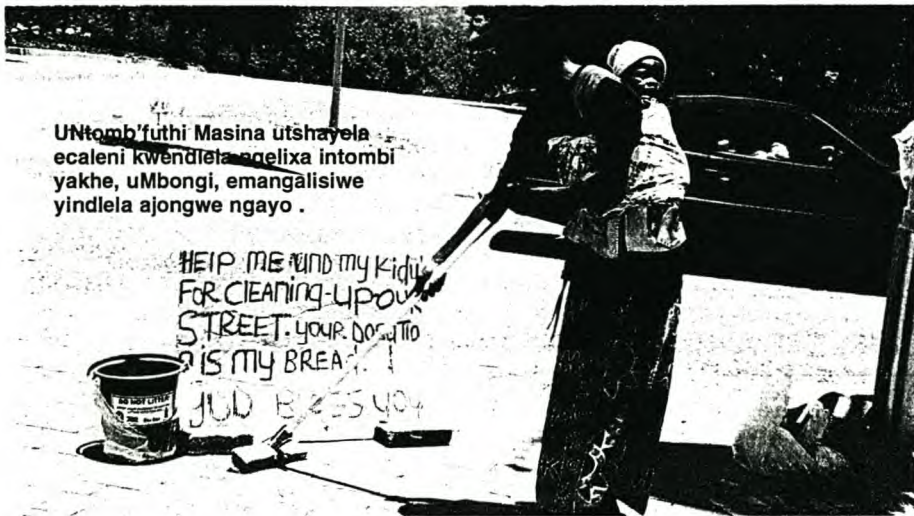 UNtomb'futhi Masina utshayela
ecaleni kwendlela ngelixa intombi
yakhe, uMbongi, emangalisiwe
yindlela ajongwe ngayo .
HElP ME my Kid
FOR ClEAnIng-UP
STREET. YOUR
IS MY
YOU
DO NOT LITTER